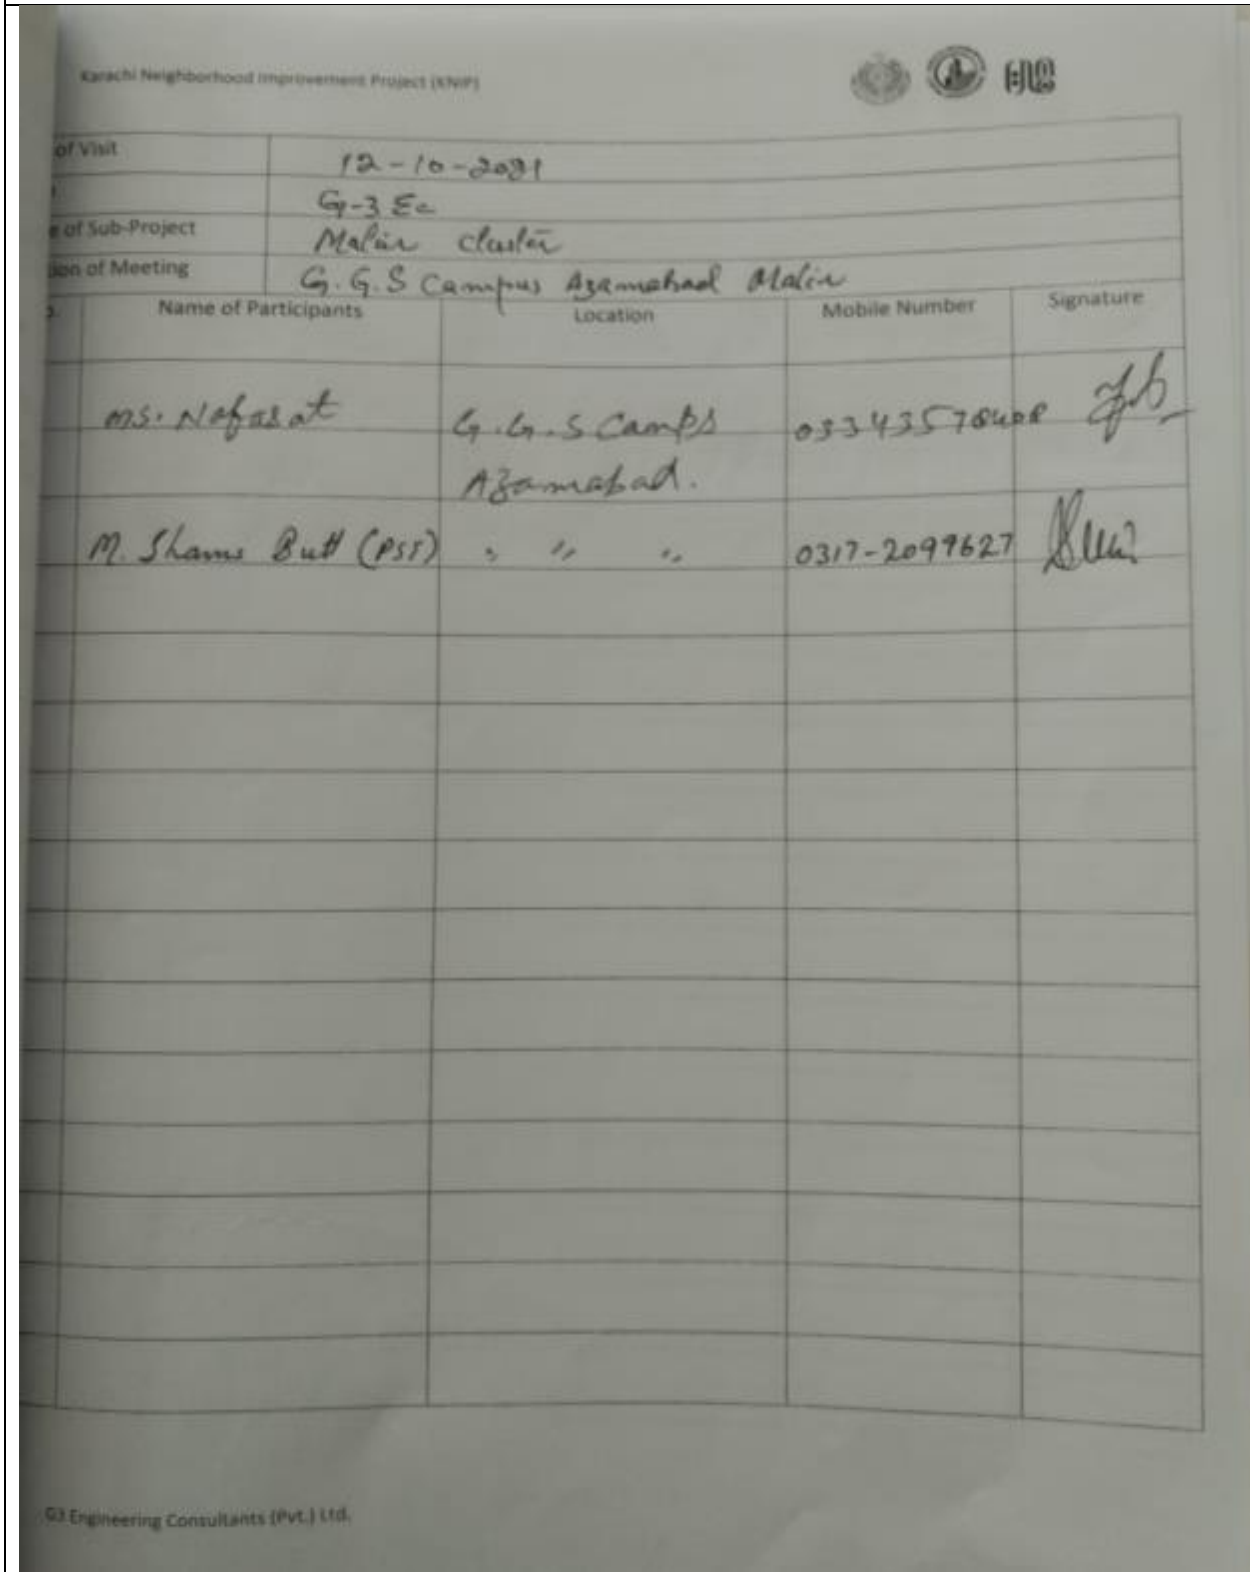 Karachi Neighborhood Improvement Project (KNIP)
of Visit 12-10-2021
G-3 Ec
e of Sub-Project Malir cluster
ion of Meeting G.G.S Campus Azamabad Malir
Name of Participants Location Mobile Number Signature
Ms. Nafasat G.G.S Camps
Azamabad.
M. Shams Butt (PST) " " " 0317-2099627
G3 Engineering Consultants (Pvt.) Ltd.